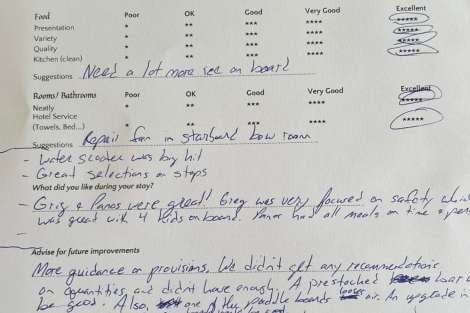 Food Poor OK Good Very Good Excellent
Presentation * ** *** **** *****
Variety * ** *** **** *****
Quality * ** *** **** *****
Kitchen (clean) * ** *** **** *****
Suggestions Need a lot more ice on board
Rooms/ Bathrooms Poor OK Good Very Good Excellent
Neatly * ** *** **** *****
Hotel Service
(Towels, Bed...) * ** *** **** *****
Suggestions Repair fan in starboard bow room
- Water scooter was big hit
- Great selections on stops
What did you like during your stay?
- Grig & Panos were great! Greg was very focused on safety which
was great with 4 kids on board. Panos had all meals on time &
-
Advise for future improvements
More guidance on provisions. We didn't get any recommendations
on quantities, and didn't have enough. A prestocked bar
be good. Also, one of the paddle boards loses air. An upgrade in